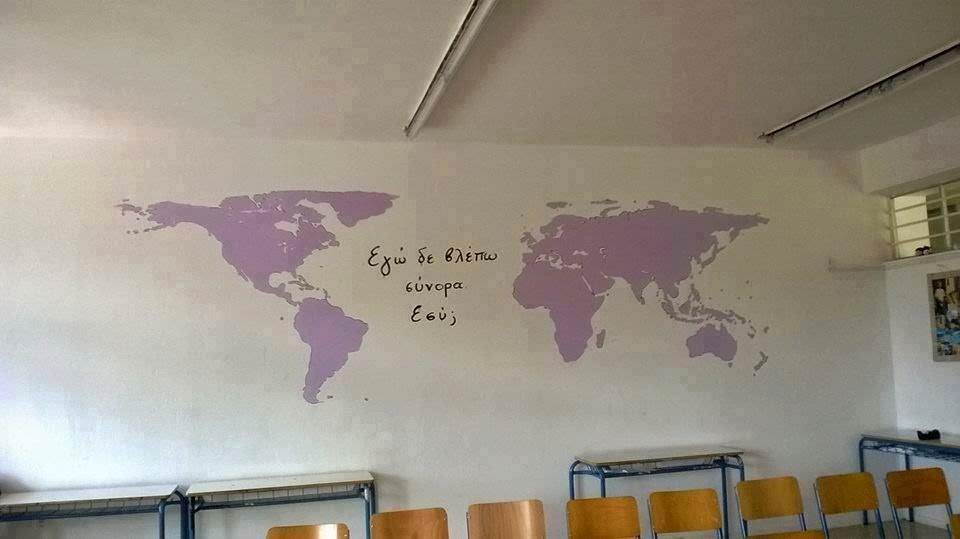 Εγώ δε βλέπω
σύνορα
Εσύ;